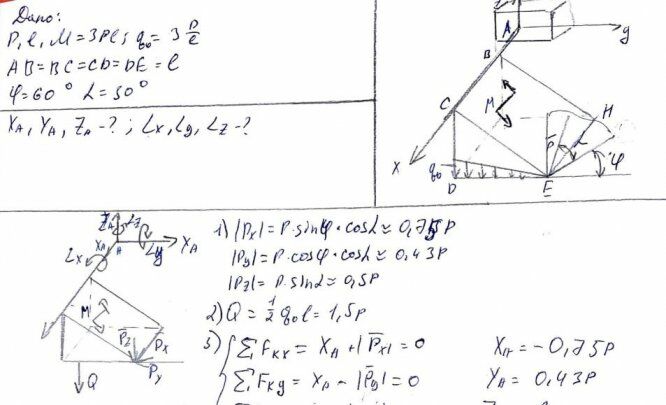 Дано:
P, l, M = 3Pl; q₀ = 3 P/l
AB = BC = CD = DE = l
φ = 60° L = 30°
X_A, Y_A, Z_A - ? ; L_x, L_y, L_z - ?
A
y
B
C
M
H
x
P
L
φ
q₀
D
E
Z_A
L_z
X_A
A
X_A
L_y
L_x
M
P_z
P_x
P_y
Q
1) |P_x| = P·sinφ·cosL ≈ 0,75P
|P_y| = P·cosφ·cosL ≈ 0,43P
|P_z| = P·sinL ≈ 0,5P
2) Q = 1/2 q₀l = 1,5P
3) { ΣF_kx = X_A + |P̅_x| = 0 X_A = -0,75P
ΣF_ky = X_A - |P̅_y| = 0 Y_A = 0,43P